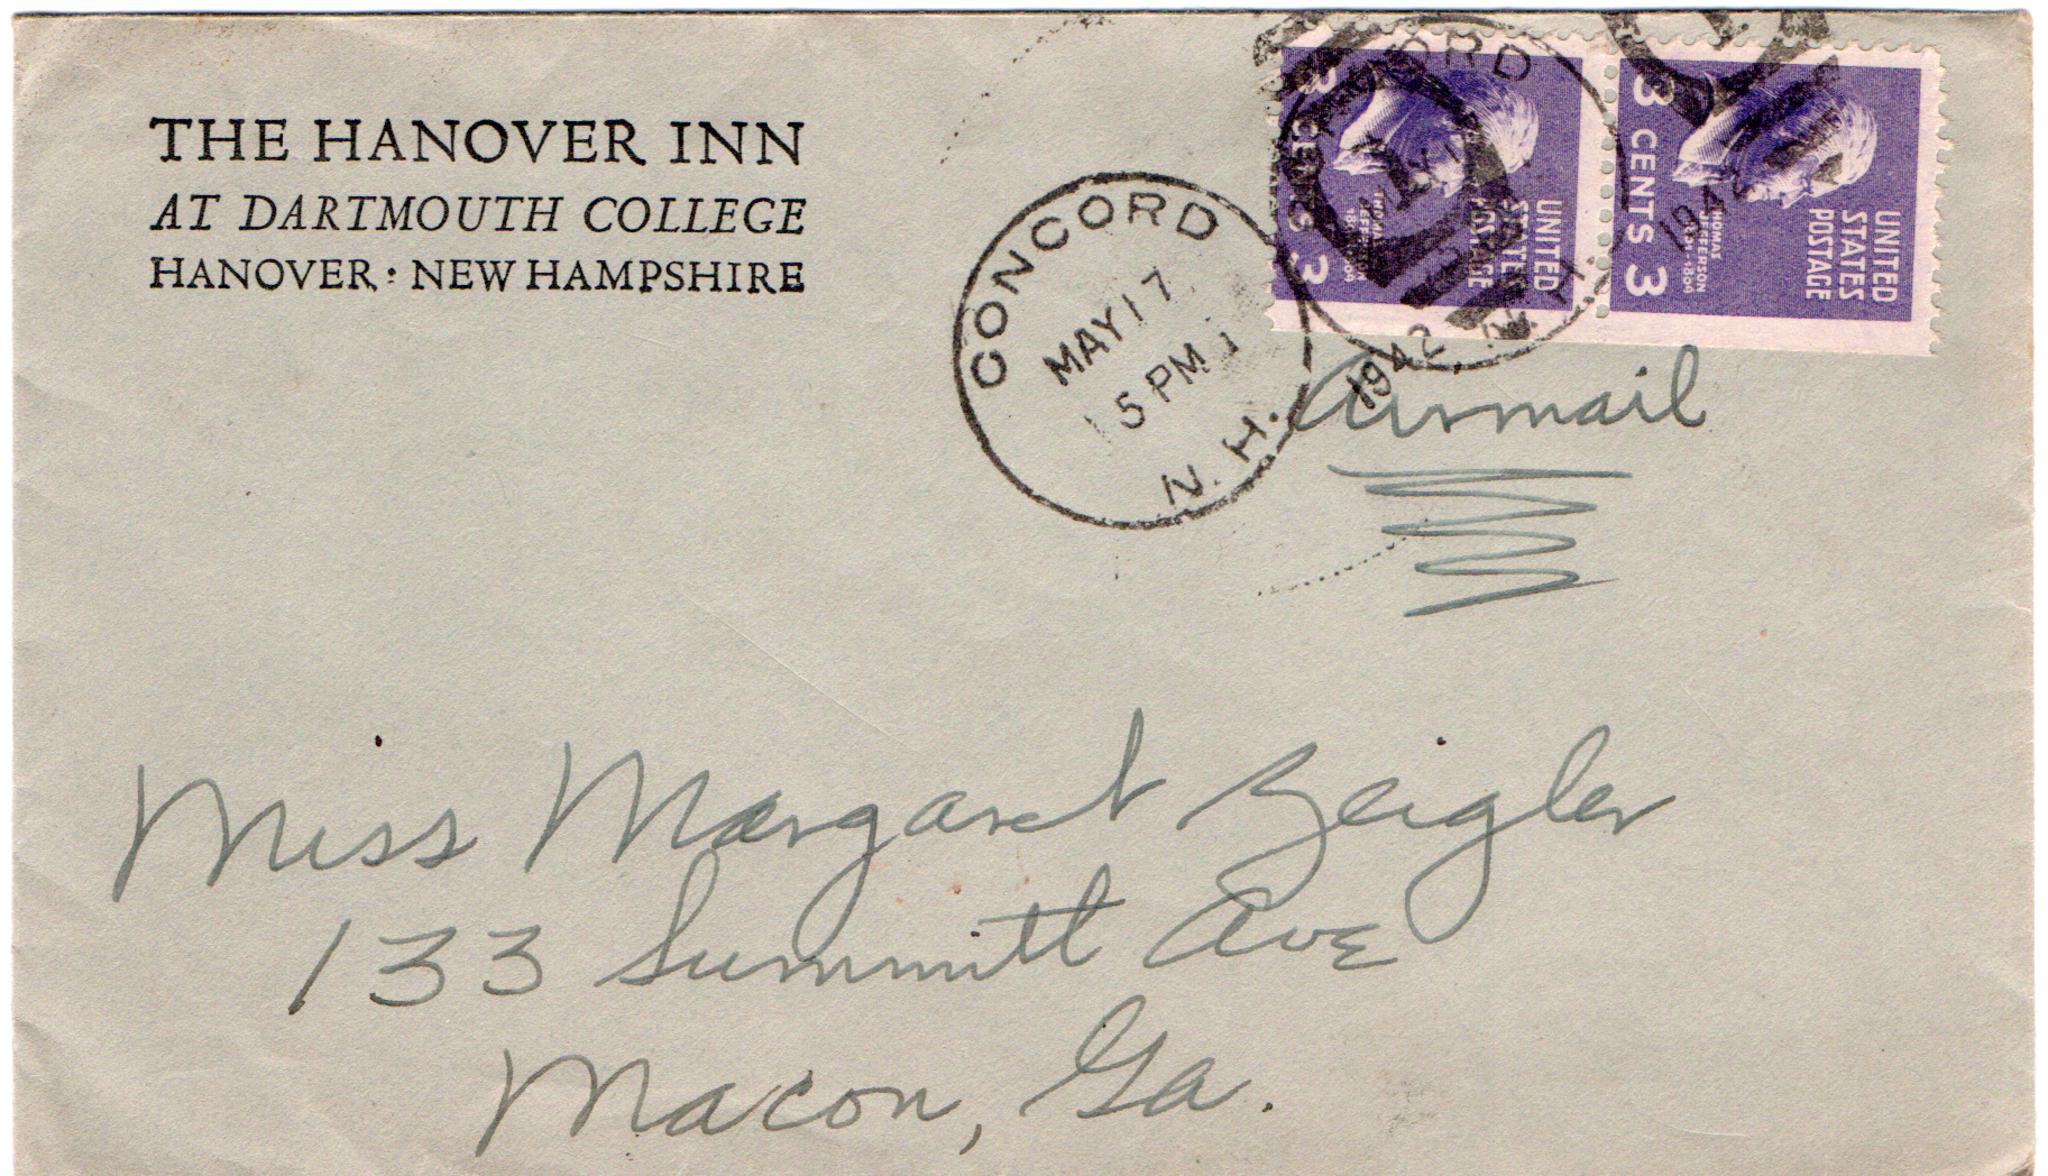 THE HANOVER INN
AT DARTMOUTH COLLEGE
HANOVER: NEW HAMPSHIRE
CONCORD
MAY 17
5 PM
N. H.
1942
1942
3 CENTS 3
UNITED
STATES
POSTAGE
THOMAS
JEFFERSON
3 CENTS 3
UNITED
STATES
POSTAGE
THOMAS
JEFFERSON
Airmail
Miss Margaret Zeigler
133 Summitt Ave
Macon, Ga.